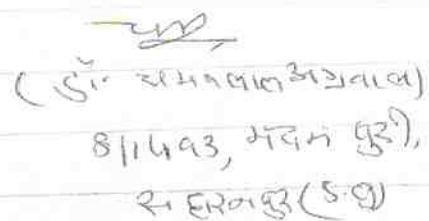 (डॉ॰ चमनलाल अग्रवाल)
8/1493, मदन पुरी,
सहारनपुर (उ.प्र)